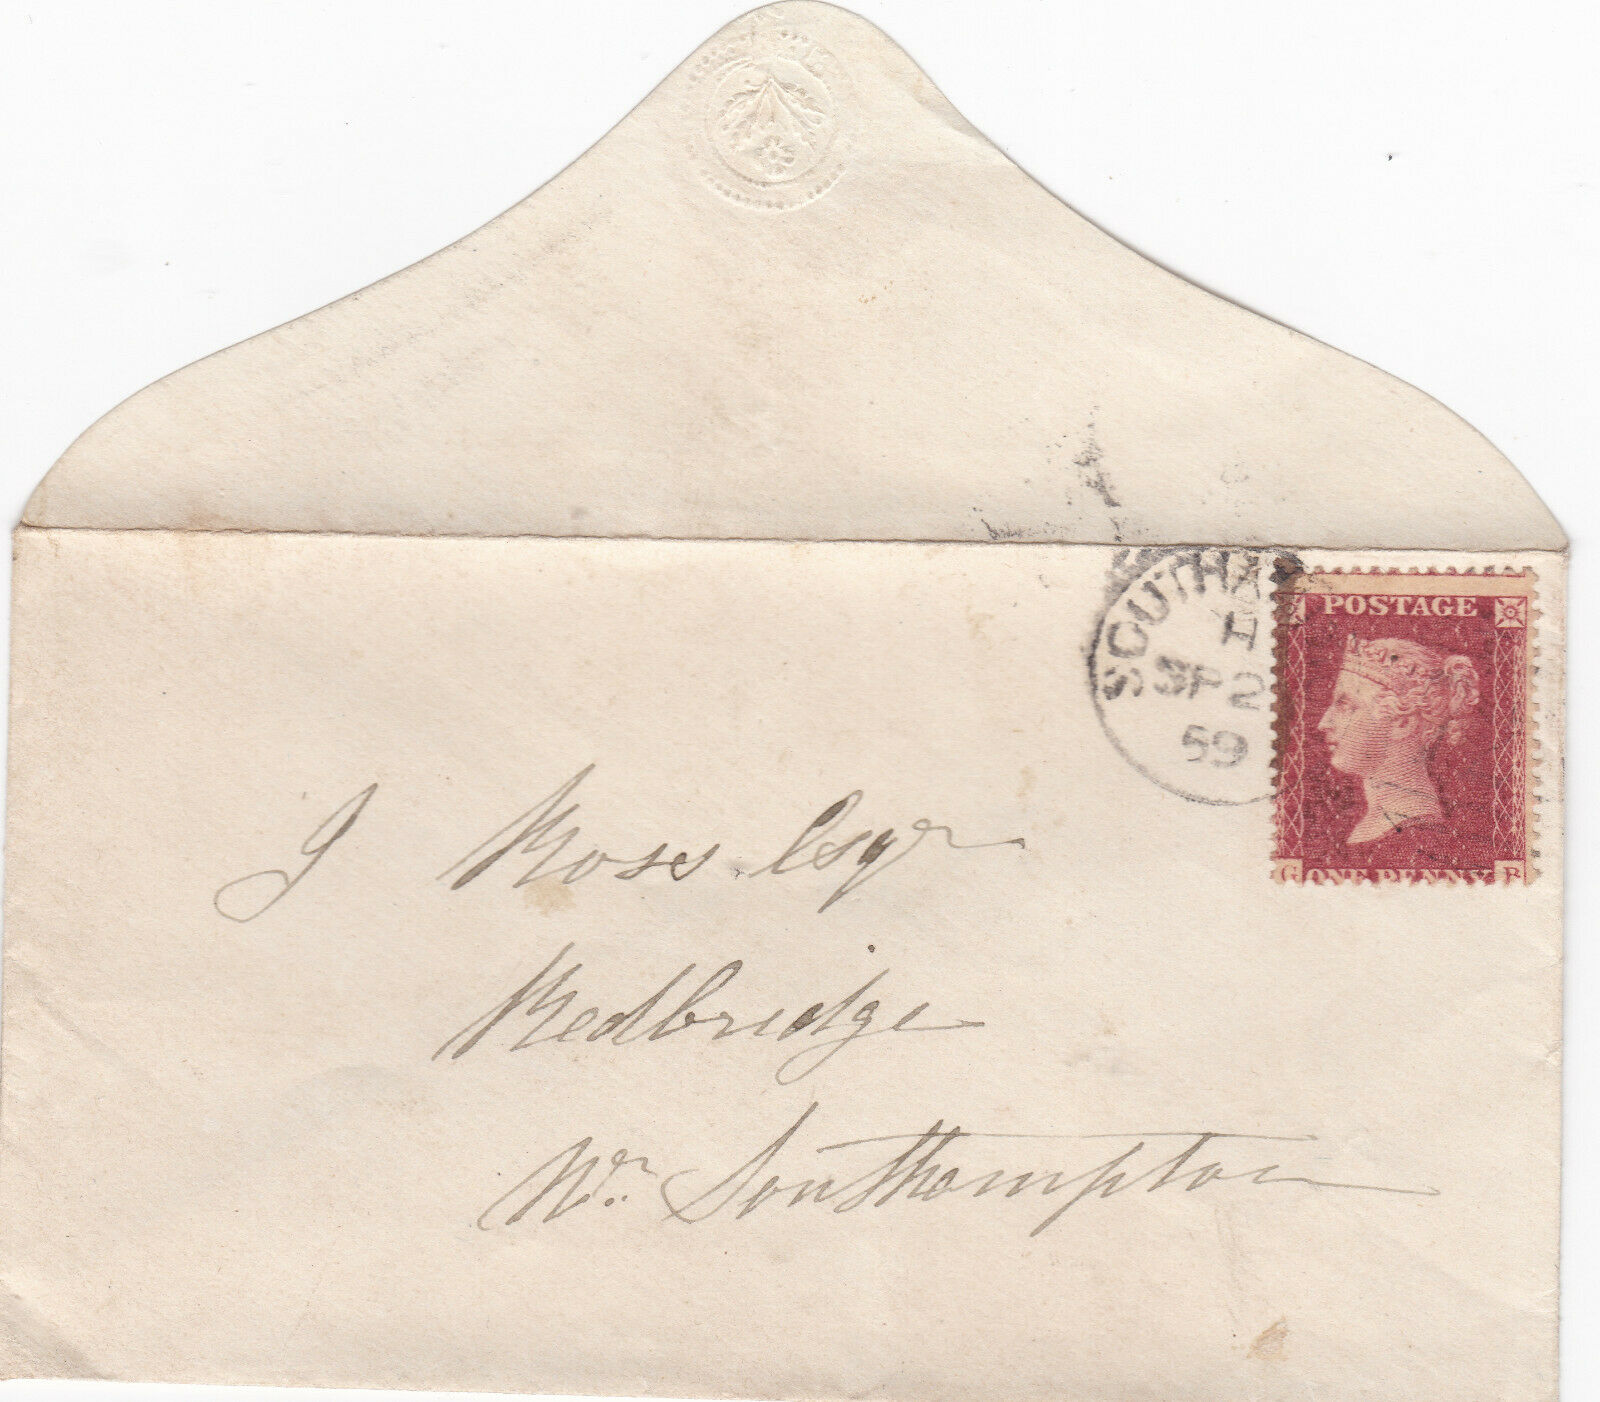 SOUTHA
H
SP 2
59
POSTAGE
G ONE PENNY B
J Ross Esqr
Redbridge
Nr. Southampton